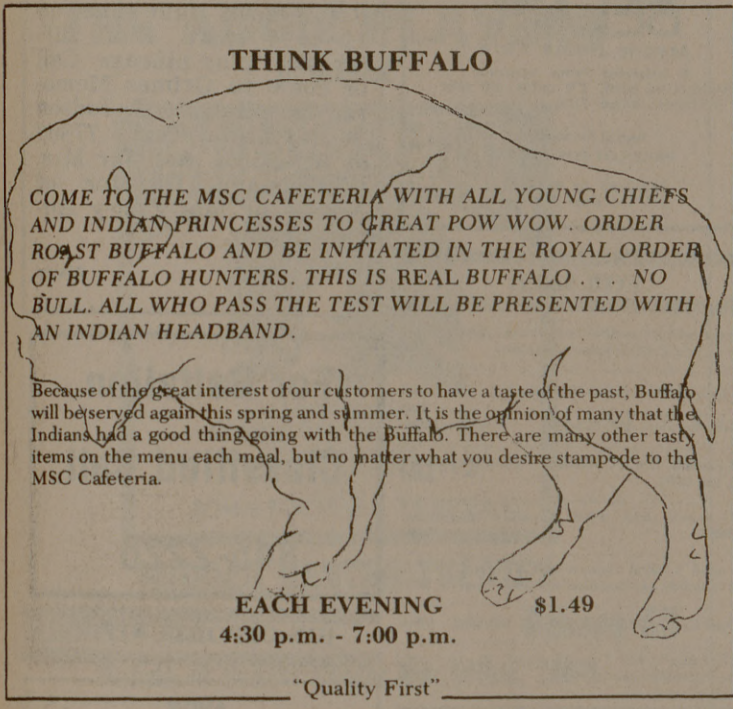 THINK BUFFALO
COME TO THE MSC CAFETERIA WITH ALL YOUNG CHIEFS
AND INDIAN PRINCESSES TO GREAT POW WOW. ORDER
ROAST BUFFALO AND BE INITIATED IN THE ROYAL ORDER
OF BUFFALO HUNTERS. THIS IS REAL BUFFALO . . . NO
BULL. ALL WHO PASS THE TEST WILL BE PRESENTED WITH
AN INDIAN HEADBAND.
Because of the great interest of our customers to have a taste of the past, Buffalo
will be served again this spring and summer. It is the opinion of many that the
Indians had a good thing going with the Buffalo. There are many other tasty
items on the menu each meal, but no matter what you desire stampede to the
MSC Cafeteria.
EACH EVENING $1.49
4:30 p.m. - 7:00 p.m.
"Quality First"